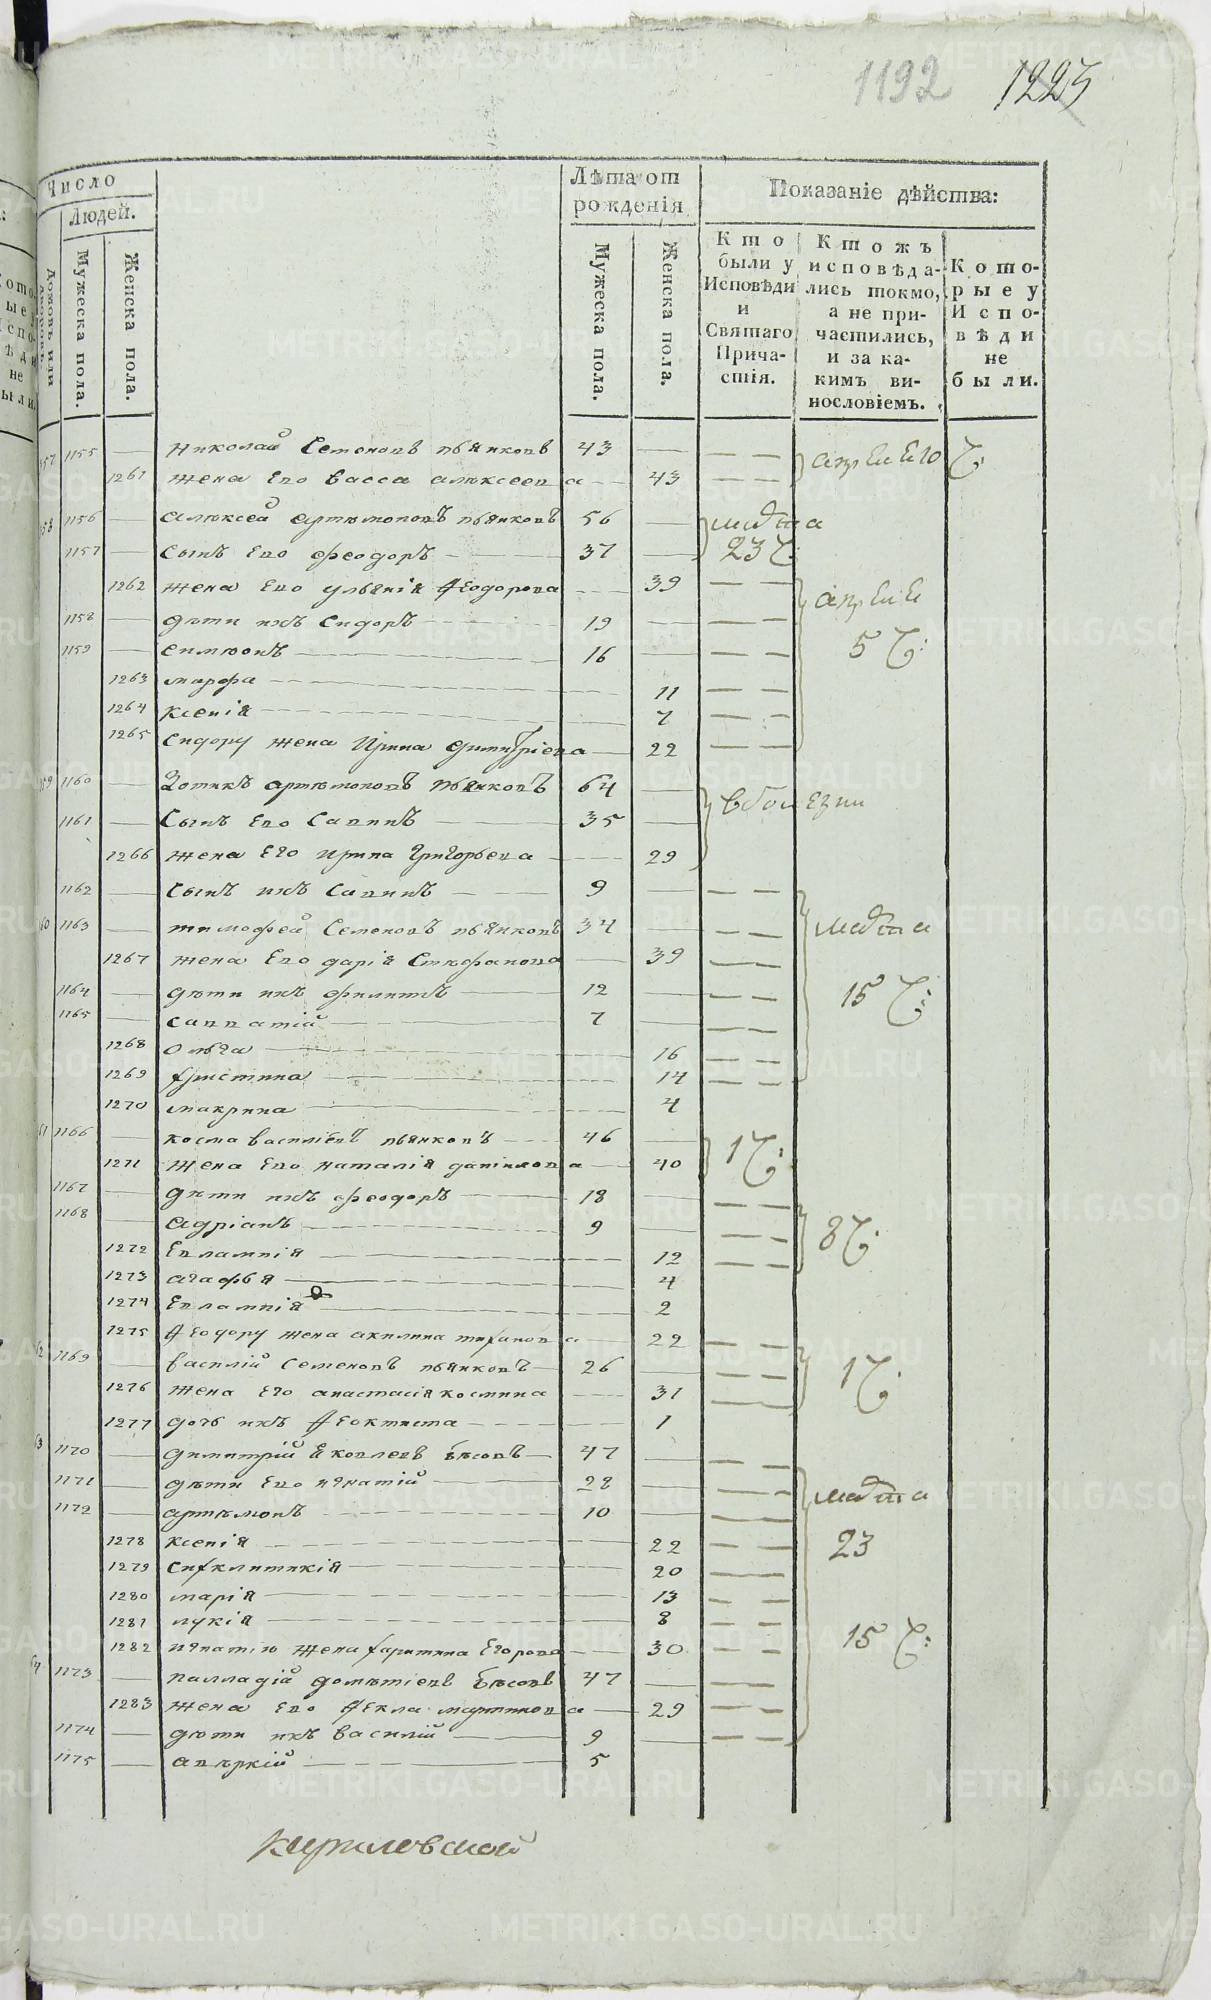 1192 1223
Число
Людей.
Лѣта от рожденія
Показаніе дѣйства:
домовъ или
Мужеска пола.
Женска пола.
Мужеска пола.
Женска пола.
Кто были у Исповѣди и Святаго Причастія.
Ктожъ исповѣдались токмо, а не причастились, и за какимъ винословіемъ.
Которые у Исповѣди не были.
57 1155 — николай Семоновъ пьянковъ 43 — апрели 10 Ч:
1261 жена Его васса алюксеева — 43
58 1156 — алюксей артѣмоновъ пьянковъ 56 — маѣта 23 Ч:
1157 — Сынъ Его феодоръ — 37 —
1262 жена Его ульянія Ѳеодорова — 39 апрели 5 Ч:
1158 — дѣти ихъ Сидоръ — 19 —
1159 — симѣонъ — 16 —
1263 марфа — 11
1264 Ксенія — 7
1265 Сидору жена Ирина димитріева — 22
59 1160 — Зотикъ артѣмоновъ пьянковъ 64 — в болезни
1161 — Сынъ Его Саввинъ — 35 —
1266 жена Его ирина Григорьева — 29
1162 — Сынъ ихъ Саввинъ — 9 —
60 1163 — тимофей Семеновъ пьянковъ 34 — марта 15 Ч:
1267 жена Его дарія Стефанова — 39
1164 — дѣти ихъ филиппъ — 12 —
1165 — савватій — 7 —
1268 Ольга — 16
1269 христина — 14
1270 макрина — 4
61 1166 — косма василіевъ пьянковъ — 46 — 1 Ч:
1271 жена Его наталія даниилова — 40
1167 — дѣти ихъ феодоръ — 18 —
1168 — адріанъ — 9 — 8 Ч:
1272 Евлампія — 12
1273 агафья — 4
1274 Евлампія — 2
1275 Ѳеодору жена акилина тиханова — 22
62 1169 — василій Семеновъ пьянковъ — 26 — 1 Ч:
1276 жена Его анастасія космина — 31
1277 дочь ихъ Ѳеоктиста — 1
63 1170 — димитрій Яковлевъ бѣсовъ — 47 —
1171 — дѣти Его игнатій — 28 — марта
1172 — артѣмонъ — 10 —
1278 Ксенія — 22 23
1279 Синклитикія — 20
1280 марія — 13
1281 лукія — 8
1282 игнатію жена харитина Егорова — 30 15 Ч:
64 1173 — палладій домѣтіевъ бѣсовъ 47 —
1283 жена Его Ѳекла мартинова — 29
1174 — дѣти ихъ василій — 9 —
1175 — авѣркій — 5
Кириловской